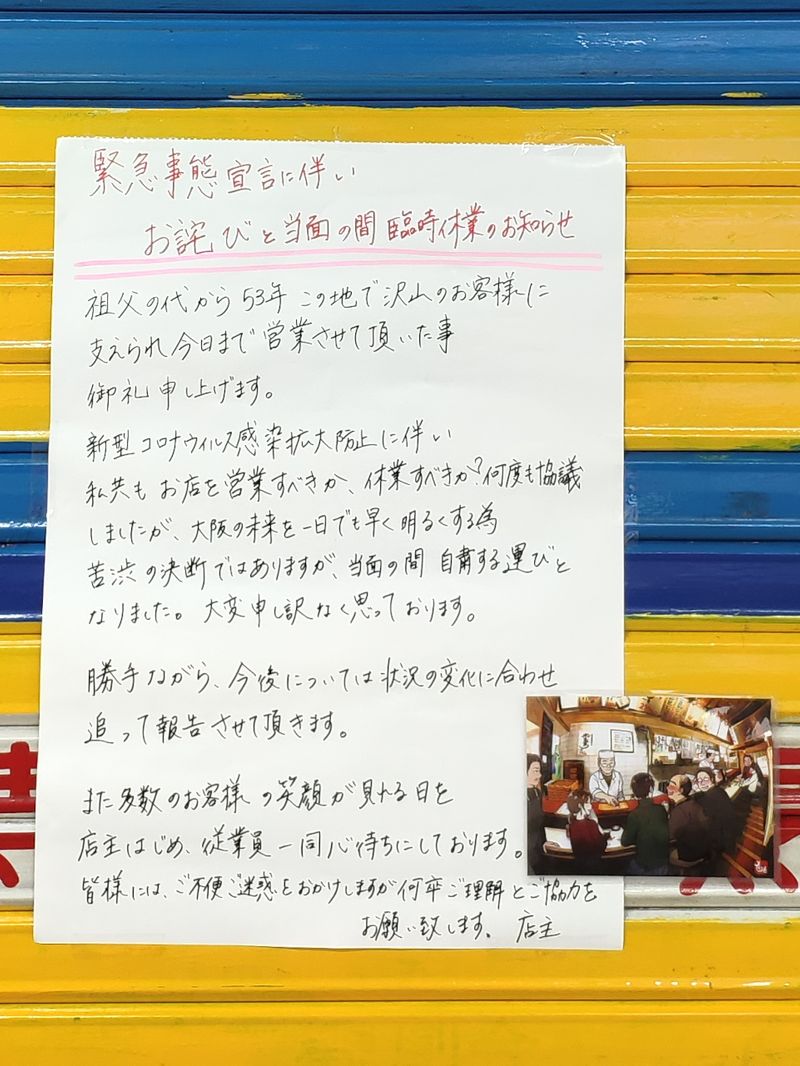 緊急事態宣言に伴い
お詫びと当面の間臨時休業のお知らせ
祖父の代から53年この地で沢山のお客様に
支えられ今日まで営業させて頂いた事
御礼申し上げます。
新型コロナウィルス感染拡大防止に伴い
私共もお店を営業すべきか、休業すべきか?何度も協議
しましたが、大阪の未来を一日でも早く明るくする為
苦渋の決断ではありますが、当面の間自粛する運びと
なりました。大変申し訳なく思っております。
勝手ながら、今後については状況の変化に合わせ
追って報告させて頂きます。
また多数のお客様の笑顔が見れる日を
店主はじめ、従業員一同心待ちにしております。
皆様には、ご不便ご迷惑をおかけしますが何卒ご理解とご協力を
お願い致します。店主